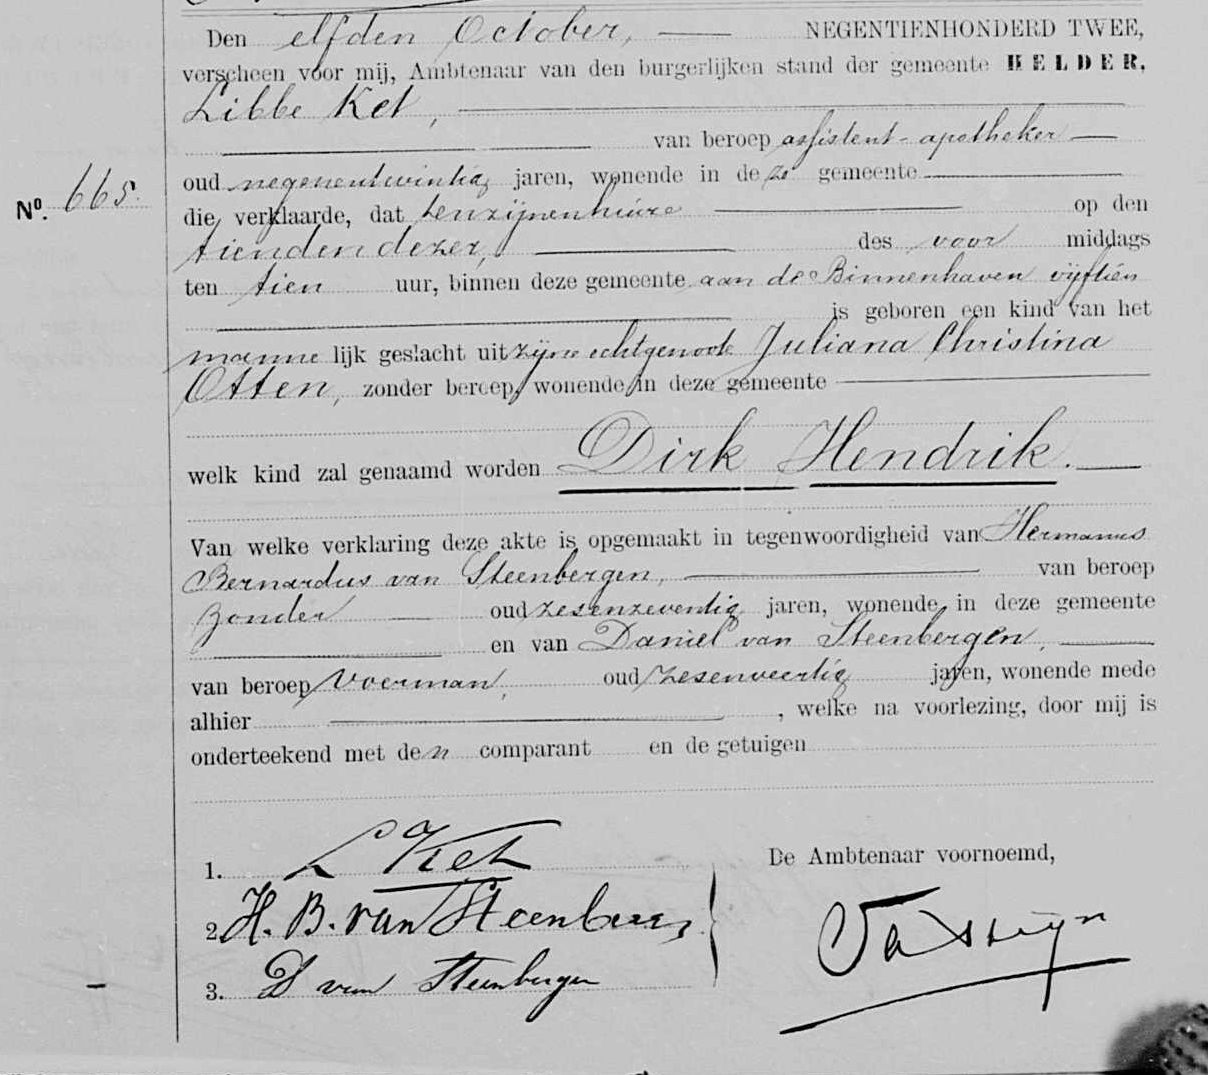 Den elfden October, NEGENTIENHONDERD TWEE,
verscheen voor mij, Ambtenaar van den burgerlijken stand der gemeente HELDER,
Libbe Ket,
van beroep assistent-apotheker
oud negenentwintig jaren, wonende in deze gemeente
No. 665.
die verklaarde, dat tenzijnenhuize op den
tienden dezer, des voor middags
ten tien uur, binnen deze gemeente aan de Binnenhaven vijftien
is geboren een kind van het
mannelijk geslacht uit zijne echtgenoote Juliana Christina
Otten, zonder beroep, wonende in deze gemeente
welk kind zal genaamd worden Dirk Hendrik.
Van welke verklaring deze akte is opgemaakt in tegenwoordigheid van Hermanus
Bernardus van Steenbergen, van beroep
zonder oud zesenzeventig jaren, wonende in deze gemeente
en van Daniel van Steenbergen,
van beroep voerman, oud zesenveertig jaren, wonende mede
alhier , welke na voorlezing, door mij is
onderteekend met den comparant en de getuigen
De Ambtenaar voornoemd,
1. L Ket
2. H. B. van Steenbergen
3. D van Steenbergen